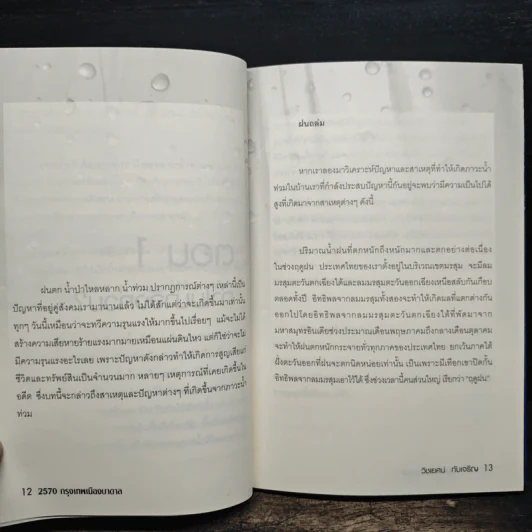 ฝนตก น้ำป่าไหลหลาก น้ำท่วม ปรากฏการณ์ต่างๆ เหล่านี้เป็น
ปัญหาที่อยู่คู่สังคมเรามานานแล้ว ไม่ได้สักแต่ว่าจะเกิดขึ้นมาเท่านั้น
ทุกๆ วันนี้เหมือนว่าจะทวีความรุนแรงให้มากขึ้นไปเรื่อยๆ แม้จะไม่ได้
สร้างความเสียหายร้ายแรงมากมายเหมือนแผ่นดินไหว แต่ก็ใช่ว่าจะไม่
มีความรุนแรงอะไรเลย เพราะปัญหาดังกล่าวทำให้เกิดการสูญเสียแก่
ชีวิตและทรัพย์สินเป็นจำนวนมาก หลายๆ เหตุการณ์ที่เคยเกิดขึ้นใน
อดีต ซึ่งบทนี้จะกล่าวถึงสาเหตุและปัญหาต่างๆ ที่เกิดขึ้นจากภาวะน้ำ
ท่วม
12 2570 กรุงเทพเมืองบาดาล
ฝนถล่ม
หากเราลองมาวิเคราะห์ปัญหาและสาเหตุที่ทำให้เกิดภาวะน้ำ
ท่วมในบ้านเราที่กำลังประสบปัญหานี้กันอยู่จะพบว่ามีความเป็นไปได้
สูงที่เกิดมาจากสาเหตุต่างๆ ดังนี้
ปริมาณน้ำฝนที่ตกหนักถึงหนักมากและตกอย่างต่อเนื่อง
ในช่วงฤดูฝน ประเทศไทยของเราตั้งอยู่ในบริเวณเขตมรสุม จะมีลม
มรสุมตะวันตกเฉียงใต้และลมมรสุมตะวันออกเฉียงเหนือสลับกันเกือบ
ตลอดทั้งปี อิทธิพลจากลมมรสุมทั้งสองจะทำให้เกิดผลที่แตกต่างกัน
ออกไปโดยอิทธิพลจากลมมรสุมตะวันตกเฉียงใต้ที่พัดมาจาก
มหาสมุทรอินเดียช่วงประมาณเดือนพฤษภาคมถึงกลางเดือนตุลาคม
จะทำให้ฝนตกหนักกระจายทั่วทุกภาคของประเทศไทย ยกเว้นภาคใต้
ฝั่งตะวันออกที่ฝนจะตกนิดหน่อยเท่านั้น เป็นเพราะมีเทือกเขาปิดกั้น
อิทธิพลจากลมมรสุมเอาไว้ได้ ซึ่งช่วงเวลานี้คนส่วนใหญ่ เรียกว่า "ฤดูฝน"
13